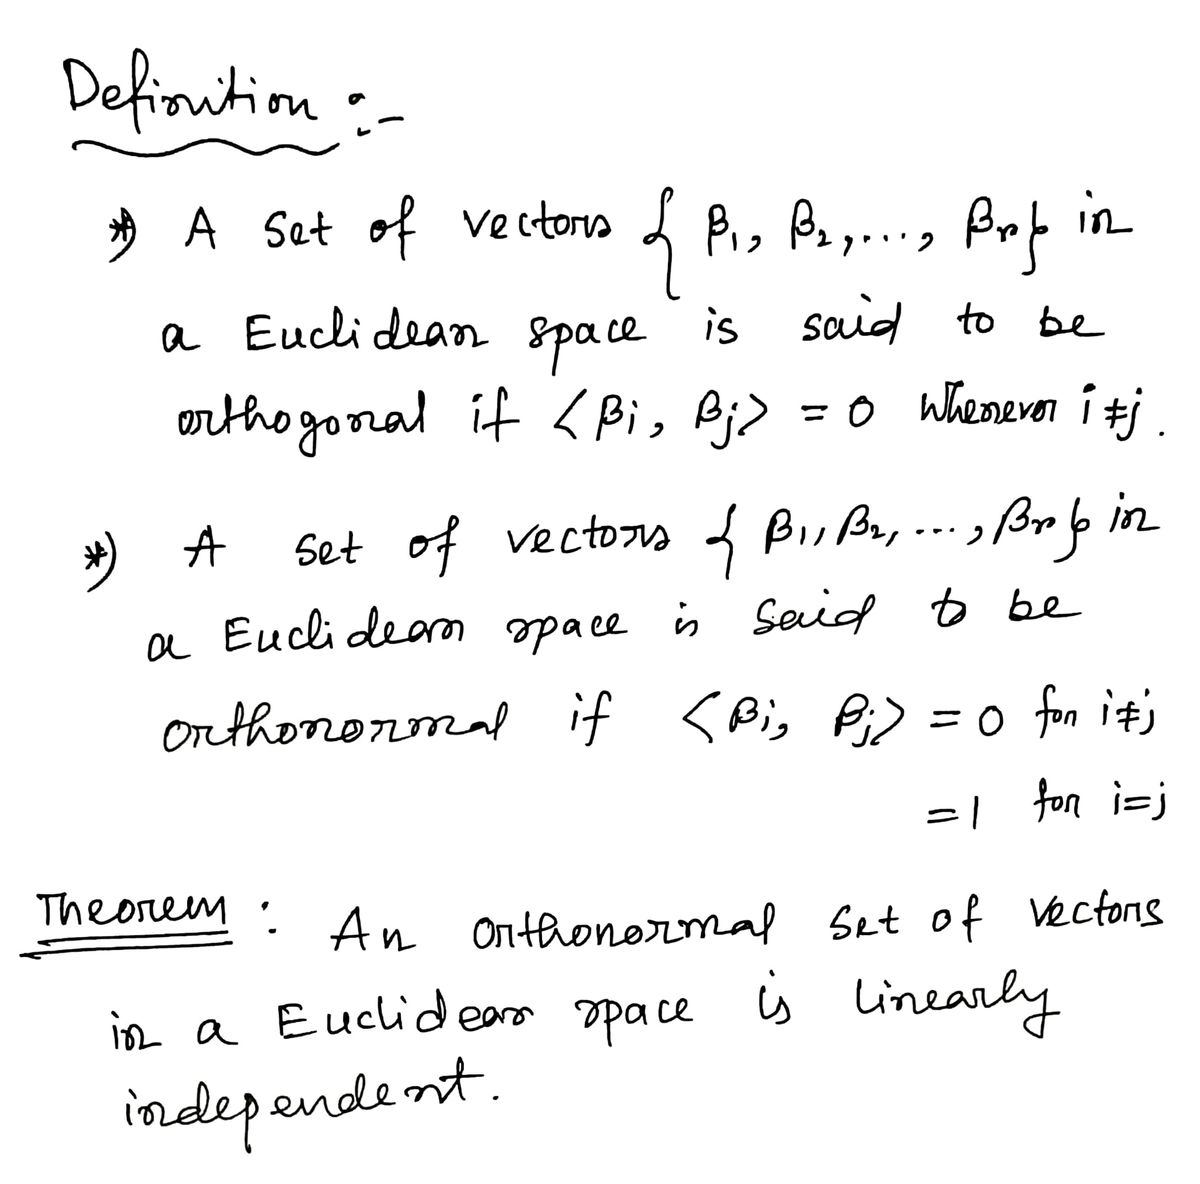 Definition :-
*) A set of vectors { β₁, β₂,..., βᵣ} in
a Euclidean space is said to be
orthogonal if <βi, βj> = 0 whenever i ≠ j.
*) A set of vectors { β₁, β₂, ..., βᵣ} in
a Euclidean space is said to be
orthonormal if <βi, βj> = 0 for i≠j
=1 for i=j
Theorem : An orthonormal set of vectors
in a Euclidean space is linearly
independent.